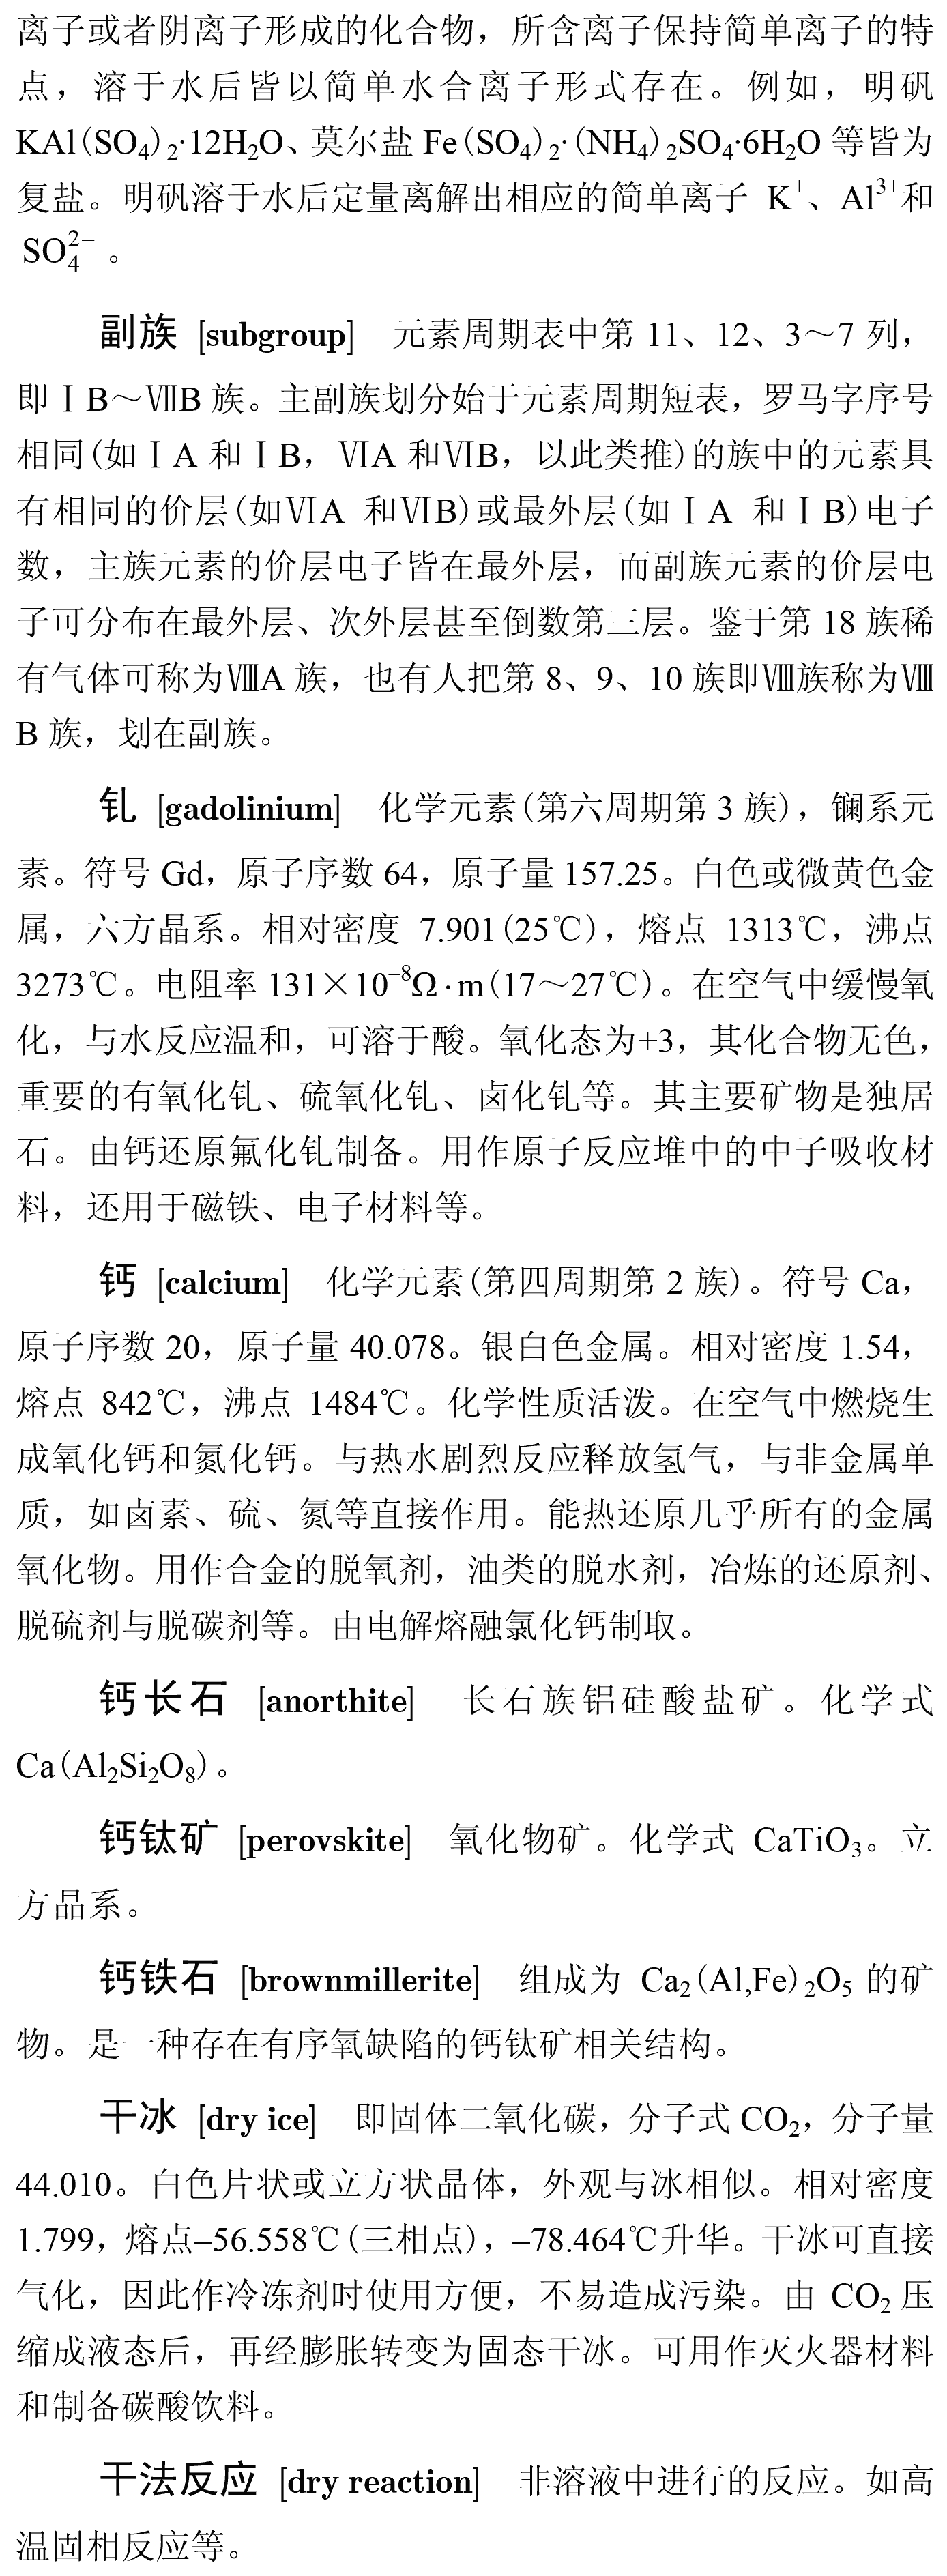 离子或者阴离子形成的化合物，所含离子保持简单离子的特
点，溶于水后皆以简单水合离子形式存在。例如，明矾
KAl(SO₄)₂·12H₂O、莫尔盐 Fe(SO₄)₂·(NH₄)₂SO₄·6H₂O 等皆为
复盐。明矾溶于水后定量离解出相应的简单离子 K⁺、Al³⁺和
SO₄²⁻ 。
副族 [subgroup] 元素周期表中第 11、12、3～7 列，
即ⅠB～ⅦB 族。主副族划分始于元素周期短表，罗马字序号
相同(如ⅠA 和ⅠB，ⅥA 和ⅥB，以此类推)的族中的元素具
有相同的价层(如ⅥA 和ⅥB)或最外层(如ⅠA 和ⅠB)电子
数，主族元素的价层电子皆在最外层，而副族元素的价层电
子可分布在最外层、次外层甚至倒数第三层。鉴于第 18 族稀
有气体可称为ⅧA 族，也有人把第 8、9、10 族即Ⅷ族称为Ⅷ
B 族，划在副族。
钆 [gadolinium] 化学元素(第六周期第 3 族)，镧系元
素。符号 Gd，原子序数 64，原子量 157.25。白色或微黄色金
属，六方晶系。相对密度 7.901(25℃)，熔点 1313℃，沸点
3273℃。电阻率 131×10⁻⁸Ω·m(17～27℃)。在空气中缓慢氧
化，与水反应温和，可溶于酸。氧化态为+3，其化合物无色，
重要的有氧化钆、硫氧化钆、卤化钆等。其主要矿物是独居
石。由钙还原氟化钆制备。用作原子反应堆中的中子吸收材
料，还用于磁铁、电子材料等。
钙 [calcium] 化学元素(第四周期第 2 族)。符号 Ca，
原子序数 20，原子量 40.078。银白色金属。相对密度 1.54，
熔点 842℃，沸点 1484℃。化学性质活泼。在空气中燃烧生
成氧化钙和氮化钙。与热水剧烈反应释放氢气，与非金属单
质，如卤素、硫、氮等直接作用。能热还原几乎所有的金属
氧化物。用作合金的脱氧剂，油类的脱水剂，冶炼的还原剂、
脱硫剂与脱碳剂等。由电解熔融氯化钙制取。
钙长石 [anorthite] 长石族铝硅酸盐矿。化学式
Ca(Al₂Si₂O₈)。
钙钛矿 [perovskite] 氧化物矿。化学式 CaTiO₃。立
方晶系。
钙铁石 [brownmillerite] 组成为 Ca₂(Al,Fe)₂O₅ 的矿
物。是一种存在有序氧缺陷的钙钛矿相关结构。
干冰 [dry ice] 即固体二氧化碳，分子式 CO₂，分子量
44.010。白色片状或立方状晶体，外观与冰相似。相对密度
1.799，熔点–56.558℃(三相点)，–78.464℃升华。干冰可直接
气化，因此作冷冻剂时使用方便，不易造成污染。由 CO₂ 压
缩成液态后，再经膨胀转变为固态干冰。可用作灭火器材料
和制备碳酸饮料。
干法反应 [dry reaction] 非溶液中进行的反应。如高
温固相反应等。